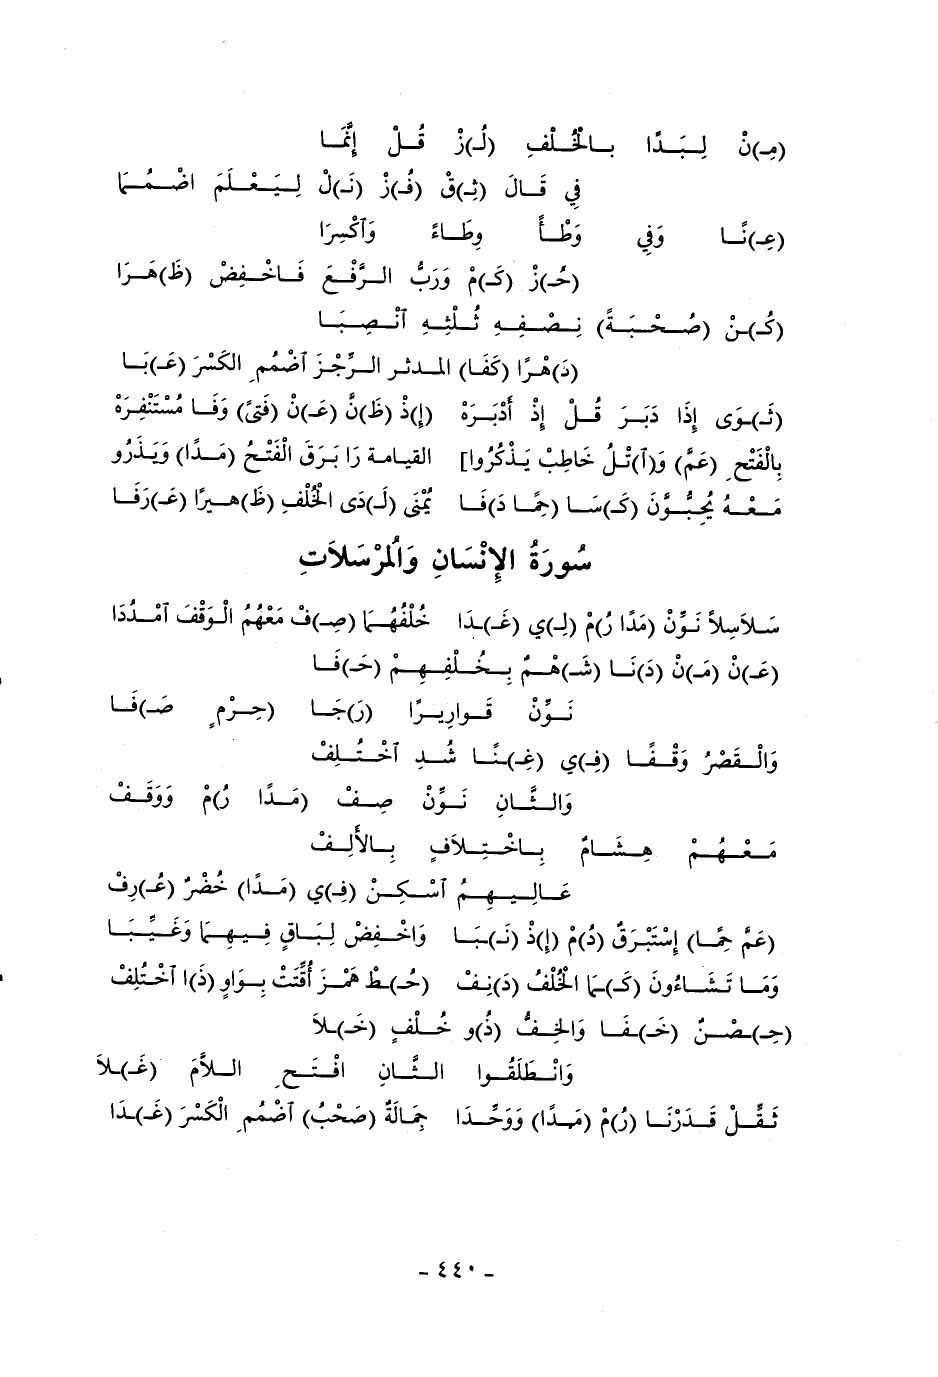 (مِـ)نْ لِـبَـدًا بِـالْخُـلْـفِ (لُـ)ـزْ قُـلْ إِنَّمَـا
فِي قَـالَ (ثِـ)ـقْ (فُـ)ـزْ (نَـ)ـلْ لِـيَـعْـلَـمَ اضْـمُـمَـا
(غِـ)ـنًـا وَفِي وَطْـأً وِطَـاءً وَآكْسِرَا
(حُـ)ـزْ (كَـ)ـمْ وَرَبُّ الـرَّفْـعِ فَـاخْـفِضْ (ظَـ)ـهَـرَا
(كُـ)ـنْ (صُـحْـبَـةً) نِـصْـفِـهِ ثُـلْثِـهِ آنْـصِـبَـا
(دَ)هْـرًا (كَفَـا) المـدثـر الـرُّجْـزَ آضْمُمِ الْكَسْرَ (عَـ)ـبَـا
(ثَـ)ـوَى إِذَا دَبَـرَ قُـلْ إِذْ أَدْبَـرَهْ (إِ)ذْ (ظَـ)ـنَّ (عَـ)ـنْ (فَتًى) وَفَـا مُسْتَنْفِرَهْ
بِالْفَتْحِ (عَمَّ) وَ(آ)تْـلُ خَاطِبْ يَـذْكُرُوا] القيامـة رَا بَـرَقَ الْفَتْـحُ (مَـدًا) وَيَـذَرُو
مَـعْـهُ يُحِبُّـونَ (كَـ)ـسَـا (حِمًـا دَ)فَـا يُمْنَى (لَـ)ـدَى الْخُلْفِ (ظَـ)ـهِـيرًا (عَـ)ـرَفَـا
سُورَةُ الإِنْسَانِ وَالْمُرْسَلاَتِ
سَـلاَسِـلاً نَـوِّنْ (مَدًا رُ)مْ (لِـ)ـي (غَـ)ـدَا خُلْفُهُـمَـا (صِـ)ـفْ مَعْهُمُ الْـوَقْفَ آمْـدُدَا
(عَـ)ـنْ (مَـ)ـنْ (دَ)نَـا (شَـ)ـهْـمٌ بِـخُـلْفِـهِـمْ (حَـ)ـفَـا
نَـوِّنْ قَـوارِيـرًا (رَ)جَـا (حِـرْمٍ صَـ)ـفَـا
وَالْـقَصْرُ وَقْـفًـا (فِـ)ـي (غِـ)ـنًـا شُـدِ آخْـتُـلِفْ
وَالـثَّـانِ نَـوِّنْ صِـفْ (مَـدًا رُ)مْ وَوَقَـفْ
مَـعْـهُـمْ هِـشَـامٌ بِـاخْـتِـلاَفٍ بِـالأَلِـفْ
عَـالِـيـهِـمُ آسْـكِـنْ (فِـ)ـي (مَـدًا) خُضْرٌ (عُـ)ـرِفْ
(عَمَّ حِمًـا) إِسْتَبْرَقٌ (دُ)مْ (إِ)ذْ (نَـ)ـبَـا وَاخْـفِضْ لِبَـاقٍ فِـيـهِـمَـا وَغَـيَّـبَـا
وَمَـا تَـشَـاءُونَ (كَـ)ـمَا الْخُلْفُ (دَ)نِـفْ (حُـ)ـطْ هَمْـزَ أُقِّتَتْ بِـوَاوٍ (ذَ)ا آخْـتُلِفْ
(حِـ)ـصْـنٌ (خَـ)ـفَـا وَالْخِـفُّ (ذُ)و خُـلْفٍ (خَـ)ـلاَ
وَانْـطَلَقُـوا الـثَّـانِ افْـتَـحِ الـلاَّمَ (غَـ)ـلاَ
ثَـقِّـلْ قَـدَرْنَـا (رُ)مْ (مَـدًا) وَوَحِّـدَا جِمَـالَةٌ (صَحْبٌ) آضْمُمِ الْكَسْرَ (غَـ)ـدَا
- ٤٤٠ -